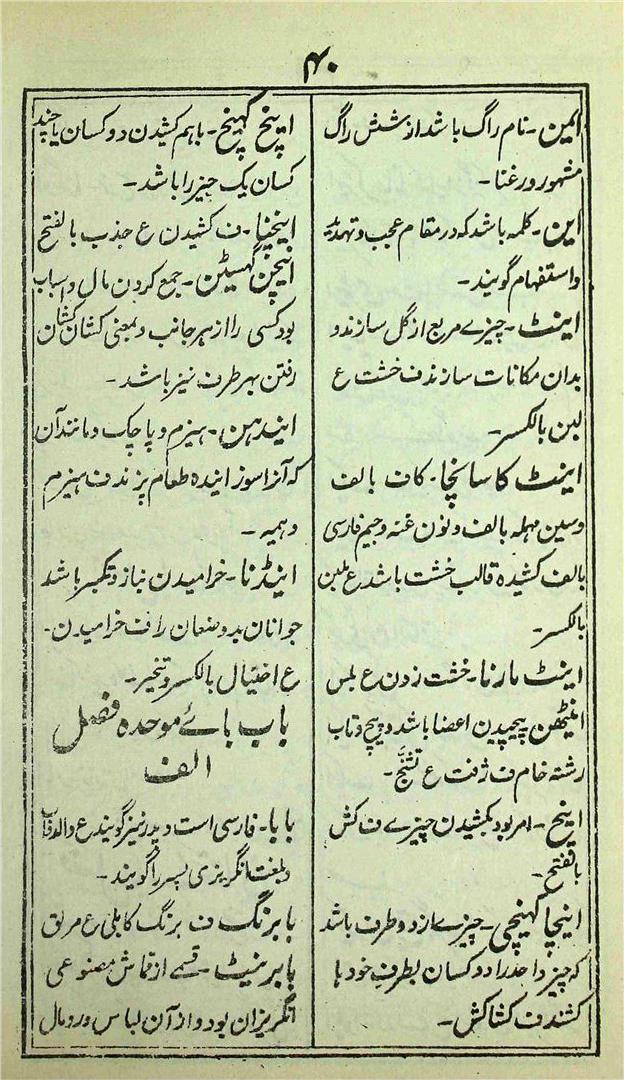 ۴۰
ایمن۔ نام راگ باشد از شش راگ
مشہور در غنا۔
این۔ کلمہ باشد کہ در مقام عجب و تہدید
و استفہام گویند۔
اینٹ۔ چیزے مربع از گل سازند و
بدان مکانات سازند ف خشت ع
لبن بالکسر۔
اینٹ کا سانچا۔ کاف بالف
و سین مہملہ بالف و نون غنہ و جیم فارسی
بالف کشیدہ قالب خشت باشد ع ملبن
بالکسر۔
اینٹ مارنا۔ خشت زدن ع لبس
اینٹھن پیچیدن اعضا باشد و پیچ و تاب
رشتہ خام ف ژفت ع تشنّج۔
اینچ۔ امر بود بکشیدن چیزے ف کش
بالفتح۔
اینچا کہینچی۔ چیزے از دو طرف باشد
کہ چیز واحد را دو کسان بطرف خود ہا
کشند ف کشاکش۔
اینچ کہینچ۔ باہم کشیدن دو کسان یا چند
کسان یک چیز را باشد۔
اینچنا۔ ف کشیدن ع جذب بالفتح
اینچن گہسیٹن۔ جمع کردن مال و اسباب
بود کسی را از ہر جانب و بمعنی کشان کشان
رفتن بہر طرف نیز باشد۔
ایندہن۔ ہیزم و پاچک و مانند آن
کہ آنرا سوزانیدہ طعام پزند ف ہیزم
و ہیمہ۔
اینڈنا۔ خرامیدن نیاز و تکبر باشد
جوانان بدوضعان را ف خرامیدن۔
ع اختیال بالکسر و تبختر۔
باب بائے موحدہ فصل
الف
بابا۔ فارسی است و پدر نیز گویند ع والد و اب
و بلغت انگریزی پسر را گویند۔
بابرنگ ف برنگ کابلی ع مرلق
بابرنیٹ۔ قسمے از قماش مصنوعی
انگریزان بود و از آن لباس و رومال